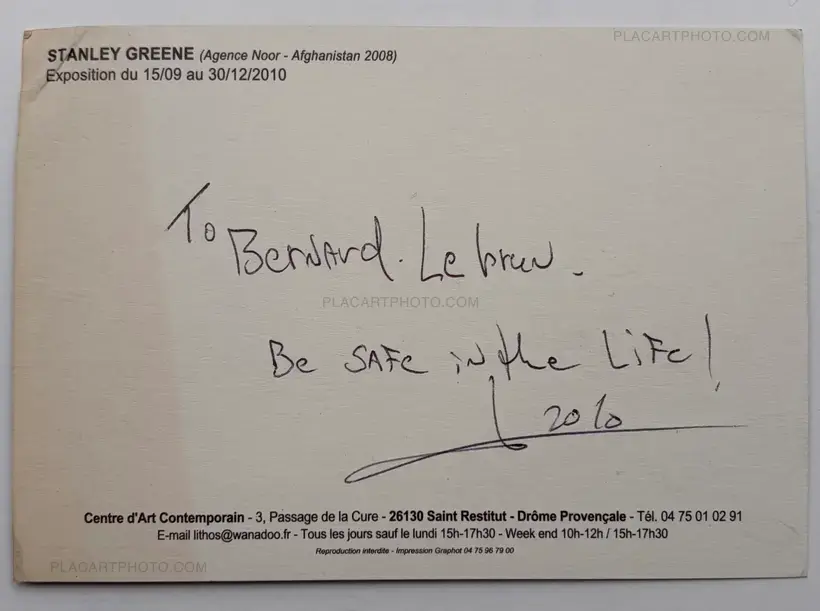 PLACARTPHOTO.COM
STANLEY GREENE (Agence Noor - Afghanistan 2008)
Exposition du 15/09 au 30/12/2010
To Bernard. Lebrun.
PLACARTPHOTO.COM
Be SAFe in the LiFe!
2010
Centre d'Art Contemporain - 3, Passage de la Cure - 26130 Saint Restitut - Drôme Provençale - Tél. 04 75 01 02 91
E-mail lithos@wanadoo.fr - Tous les jours sauf le lundi 15h-17h30 - Week end 10h-12h / 15h-17h30
Reproduction interdite - Impression Graphot 04 75 96 79 00
PLACARTPHOTO.COM